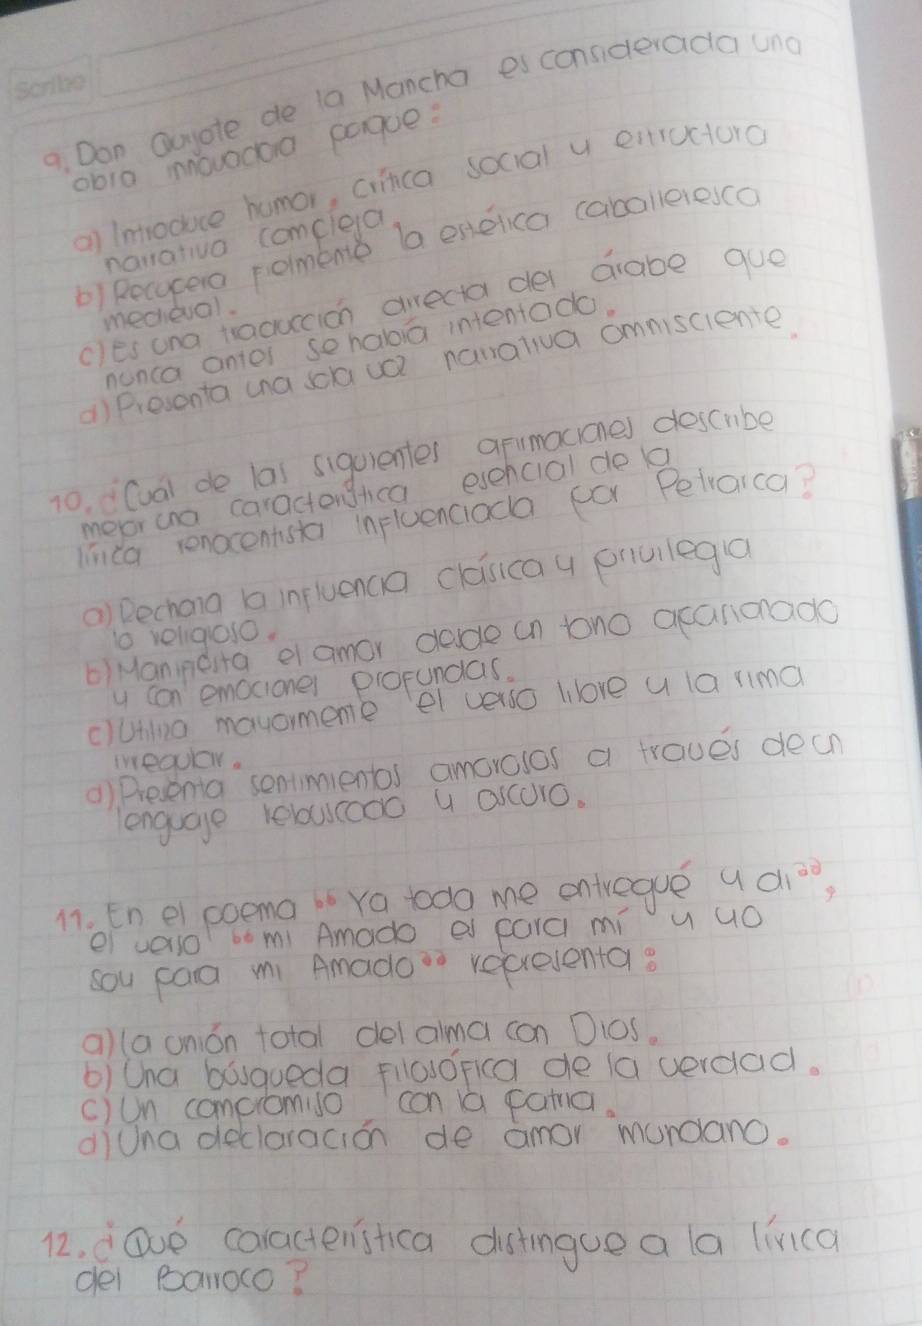 Scribe
9. Don Quijote de la Mancha es considerada una
obra innovadora porque:
a) Introduce humor, crítica social y estructura
narrativa compleja.
b) Recupera fielmente la estética caballeresca
medieval.
c) Es una traducción directa del árabe que
nunca antes se había intentado.
d) Presenta una sola voz narrativa omnisciente.
10. ¿Cuál de las siguientes afirmaciones describe
mejor una característica esencial de la
lírica renacentista influenciada por Petrarca?
a) Rechaza la influencia clásica y privilegia
lo religioso.
b) Manifiesta el amor desde un tono apasionado
y con emociones profundas.
c) Utiliza mayormente el verso libre y la rima
irregular.
d) Presenta sentimientos amorosos a través de un
lenguaje rebuscado y oscuro.
11. En el poema "Ya toda me entregué y di",
el verso "mi Amado es para mí y yo
soy para mi Amado" representa:
a) la unión total del alma con Dios.
b) Una búsqueda filosófica de la verdad.
c) Un compromiso con la patria.
d) Una declaración de amor mundano.
12. ¿Qué característica distingue a la lírica
del Barroco?